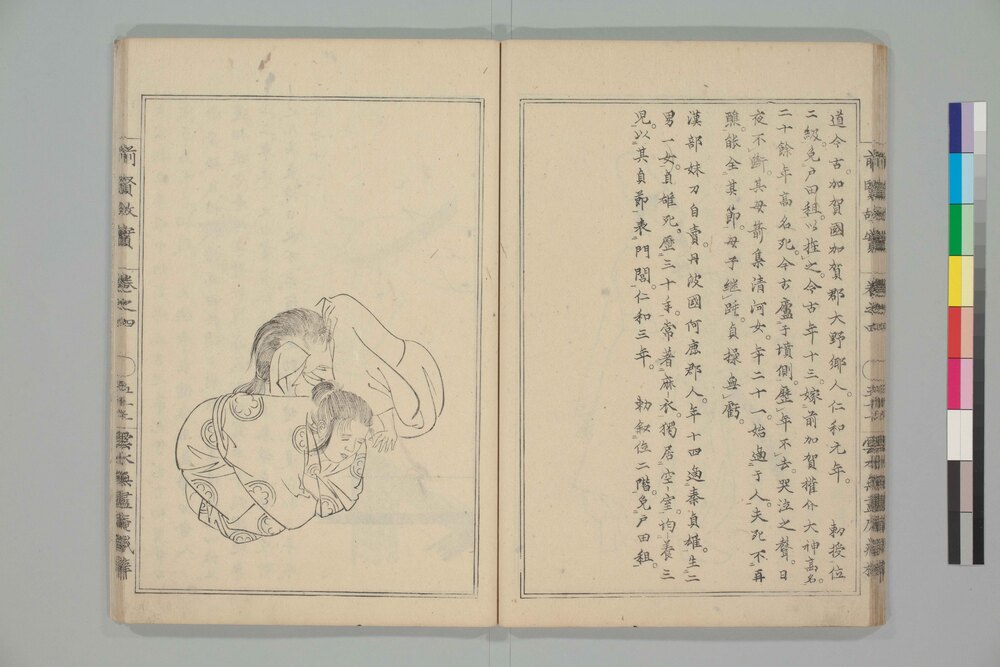 道今古。加賀國加賀郡大野郷人。仁和元年。勅授位
二級。免戸田租。以旌之。今古年十三。嫁前加賀權介大神高名。
二十餘年高名死。今古廬于墳側。歷年不去。哭泣之聲。日
夜不斷。其母箭集清河女。年二十一。始適于人。夫死不再
醮。能全其節。母子繼踵。貞操無虧。
漢部妹刀自賣。丹波國何鹿郡人。年十四適秦貞雄。生二
男一女。貞雄死。歷三十年。常著麻衣。獨居空室。均養三
児。以其貞節表門閭。仁和三年。勅叙位二階。免戸田租。
前賢故實
卷之四